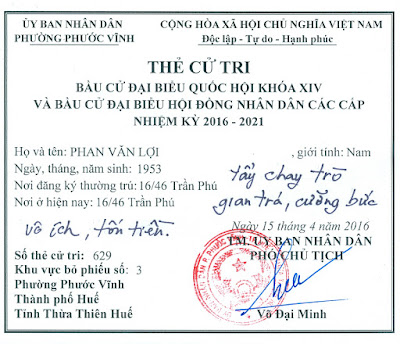 ỦY BAN NHÂN DÂN
PHƯỜNG PHƯỚC VĨNH
CỘNG HÒA XÃ HỘI CHỦ NGHĨA VIỆT NAM
Độc lập - Tự do - Hạnh phúc
THẺ CỬ TRI
BẦU CỬ ĐẠI BIỂU QUỐC HỘI KHÓA XIV
VÀ BẦU CỬ ĐẠI BIỂU HỘI ĐỒNG NHÂN DÂN CÁC CẤP
NHIỆM KỲ 2016 - 2021
Họ và tên: PHAN VĂN LỢI , giới tính: Nam
Ngày, tháng, năm sinh: 1953
Nơi đăng ký thường trú: 16/46 Trần Phú
Nơi ở hiện nay: 16/46 Trần Phú
Tẩy chay trò
gian trá, cưỡng bức
vô ích, tốn tiền.
Ngày 15 tháng 4 năm 2016
TM. ỦY BAN NHÂN DÂN
PHÓ CHỦ TỊCH
Số thẻ cử tri: 629
Khu vực bỏ phiếu số: 3
Phường Phước Vĩnh
Thành phố Huế
Tỉnh Thừa Thiên Huế
Võ Đại Minh